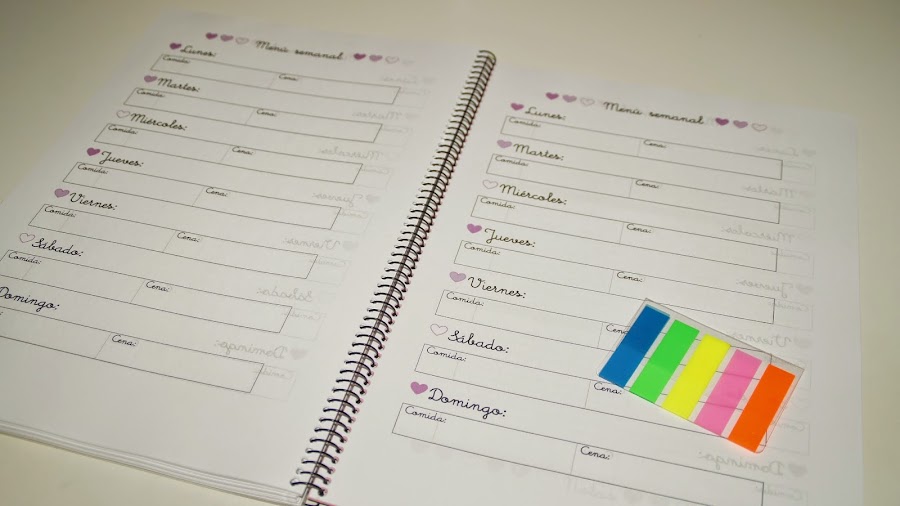 Menú semanal
Lunes:
Comida: Cena:
Martes:
Comida: Cena:
Miércoles:
Comida: Cena:
Jueves:
Comida: Cena:
Viernes:
Comida: Cena:
Sábado:
Comida: Cena:
Domingo:
Comida: Cena:
Menú semanal
Lunes:
Comida: Cena:
Martes:
Comida: Cena:
Miércoles:
Comida: Cena:
Jueves:
Comida: Cena:
Viernes:
Comida: Cena:
Sábado:
Comida: Cena:
Domingo:
Comida: Cena: